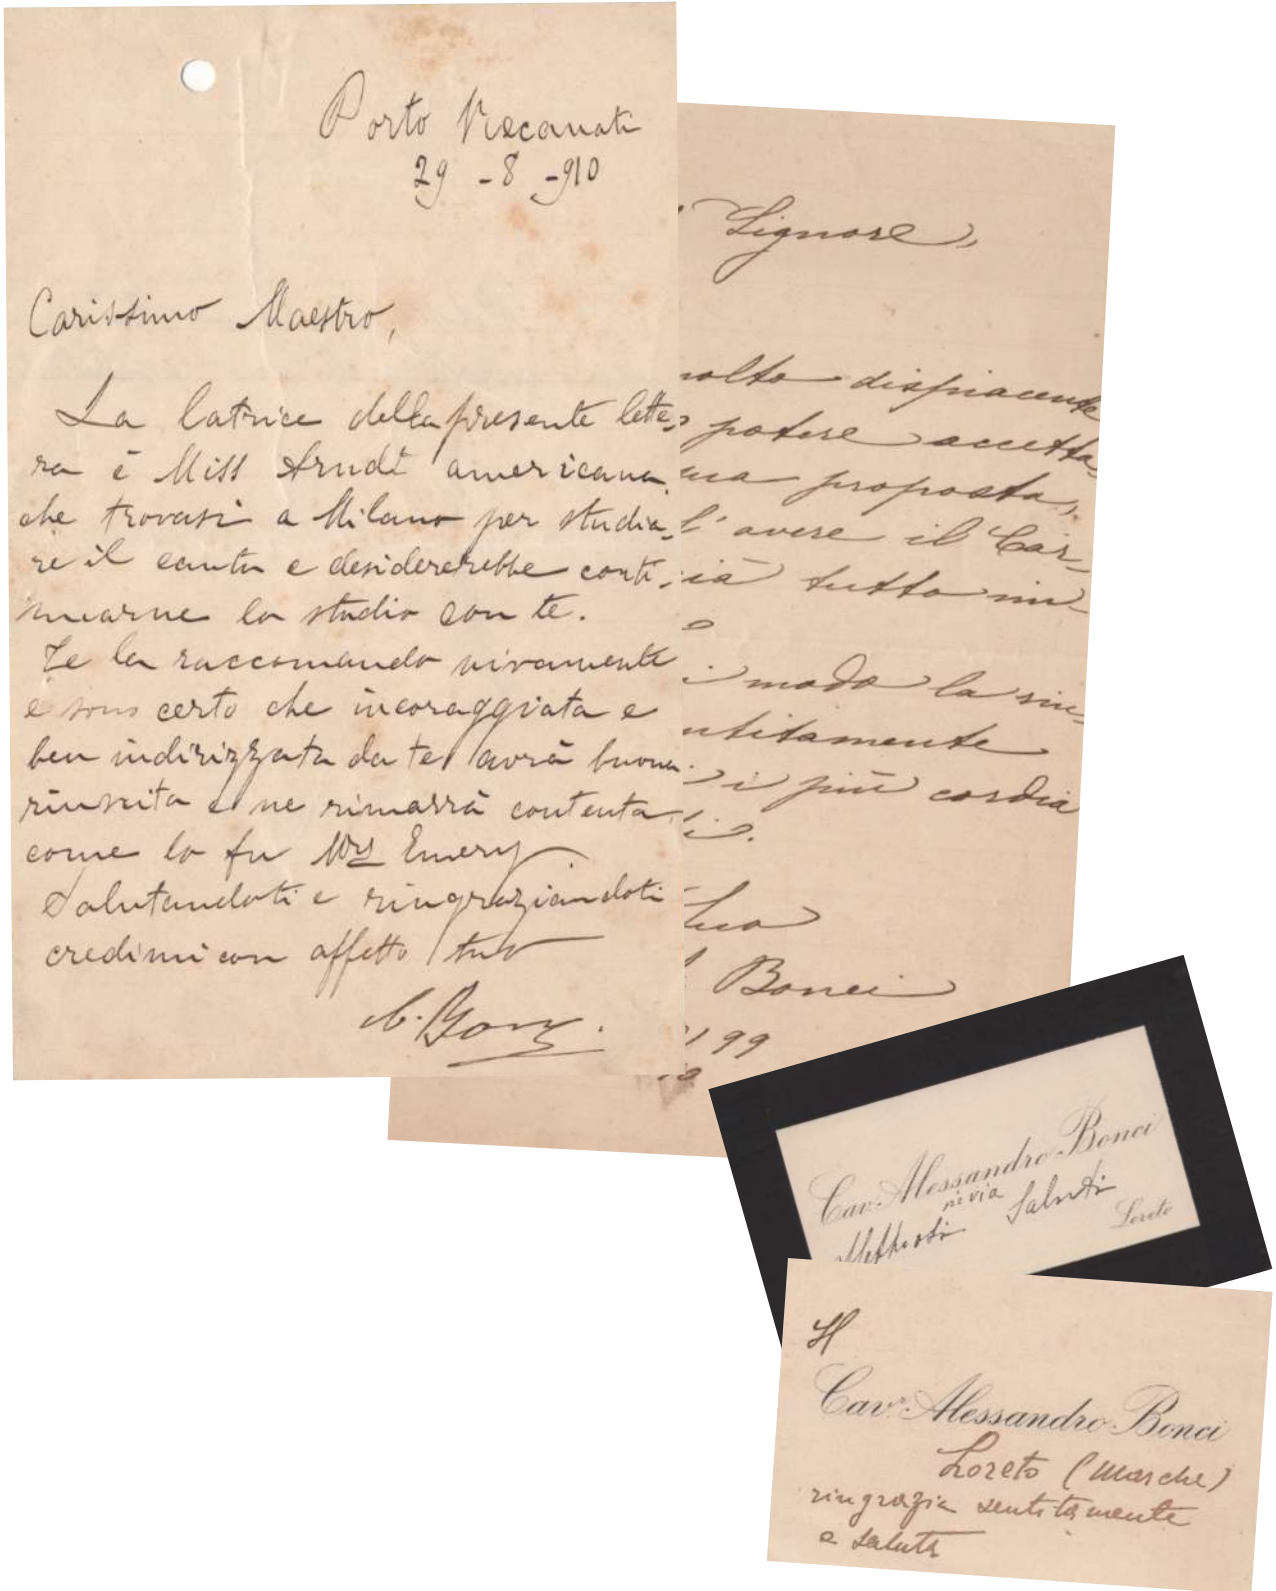 Porto Recanati
29 - 8 - 910
Carissimo Maestro,
La latrice della presente lette,
ra è Miss americana
che trovasi a Milano per studia,
re il canto e desidererebbe conti,
nuarne lo studio con te.
Te la raccomando vivamente
e sono certo che incoraggiata e
ben indirizzata da te avrà buona
riuscita e ne rimarrà contenta
come lo fu Mrs Emery.
Salutandoti e ringraziandoti
credimi con affetto tuo
A. Bonci.
Signore,
molto dispiacente
potere accetta-
sua proposta,
l'avere il Car-
già tutto im-
o
modo la rin-
sentitamente
i più cordia
li.
Suo
Bonci
199
Cav. Alessandro Bonci
invia
Affettuosi Saluti
Loreto
Il
Cavr. Alessandro Bonci
Loreto (Marche)
ringrazia sentitamente
e saluta